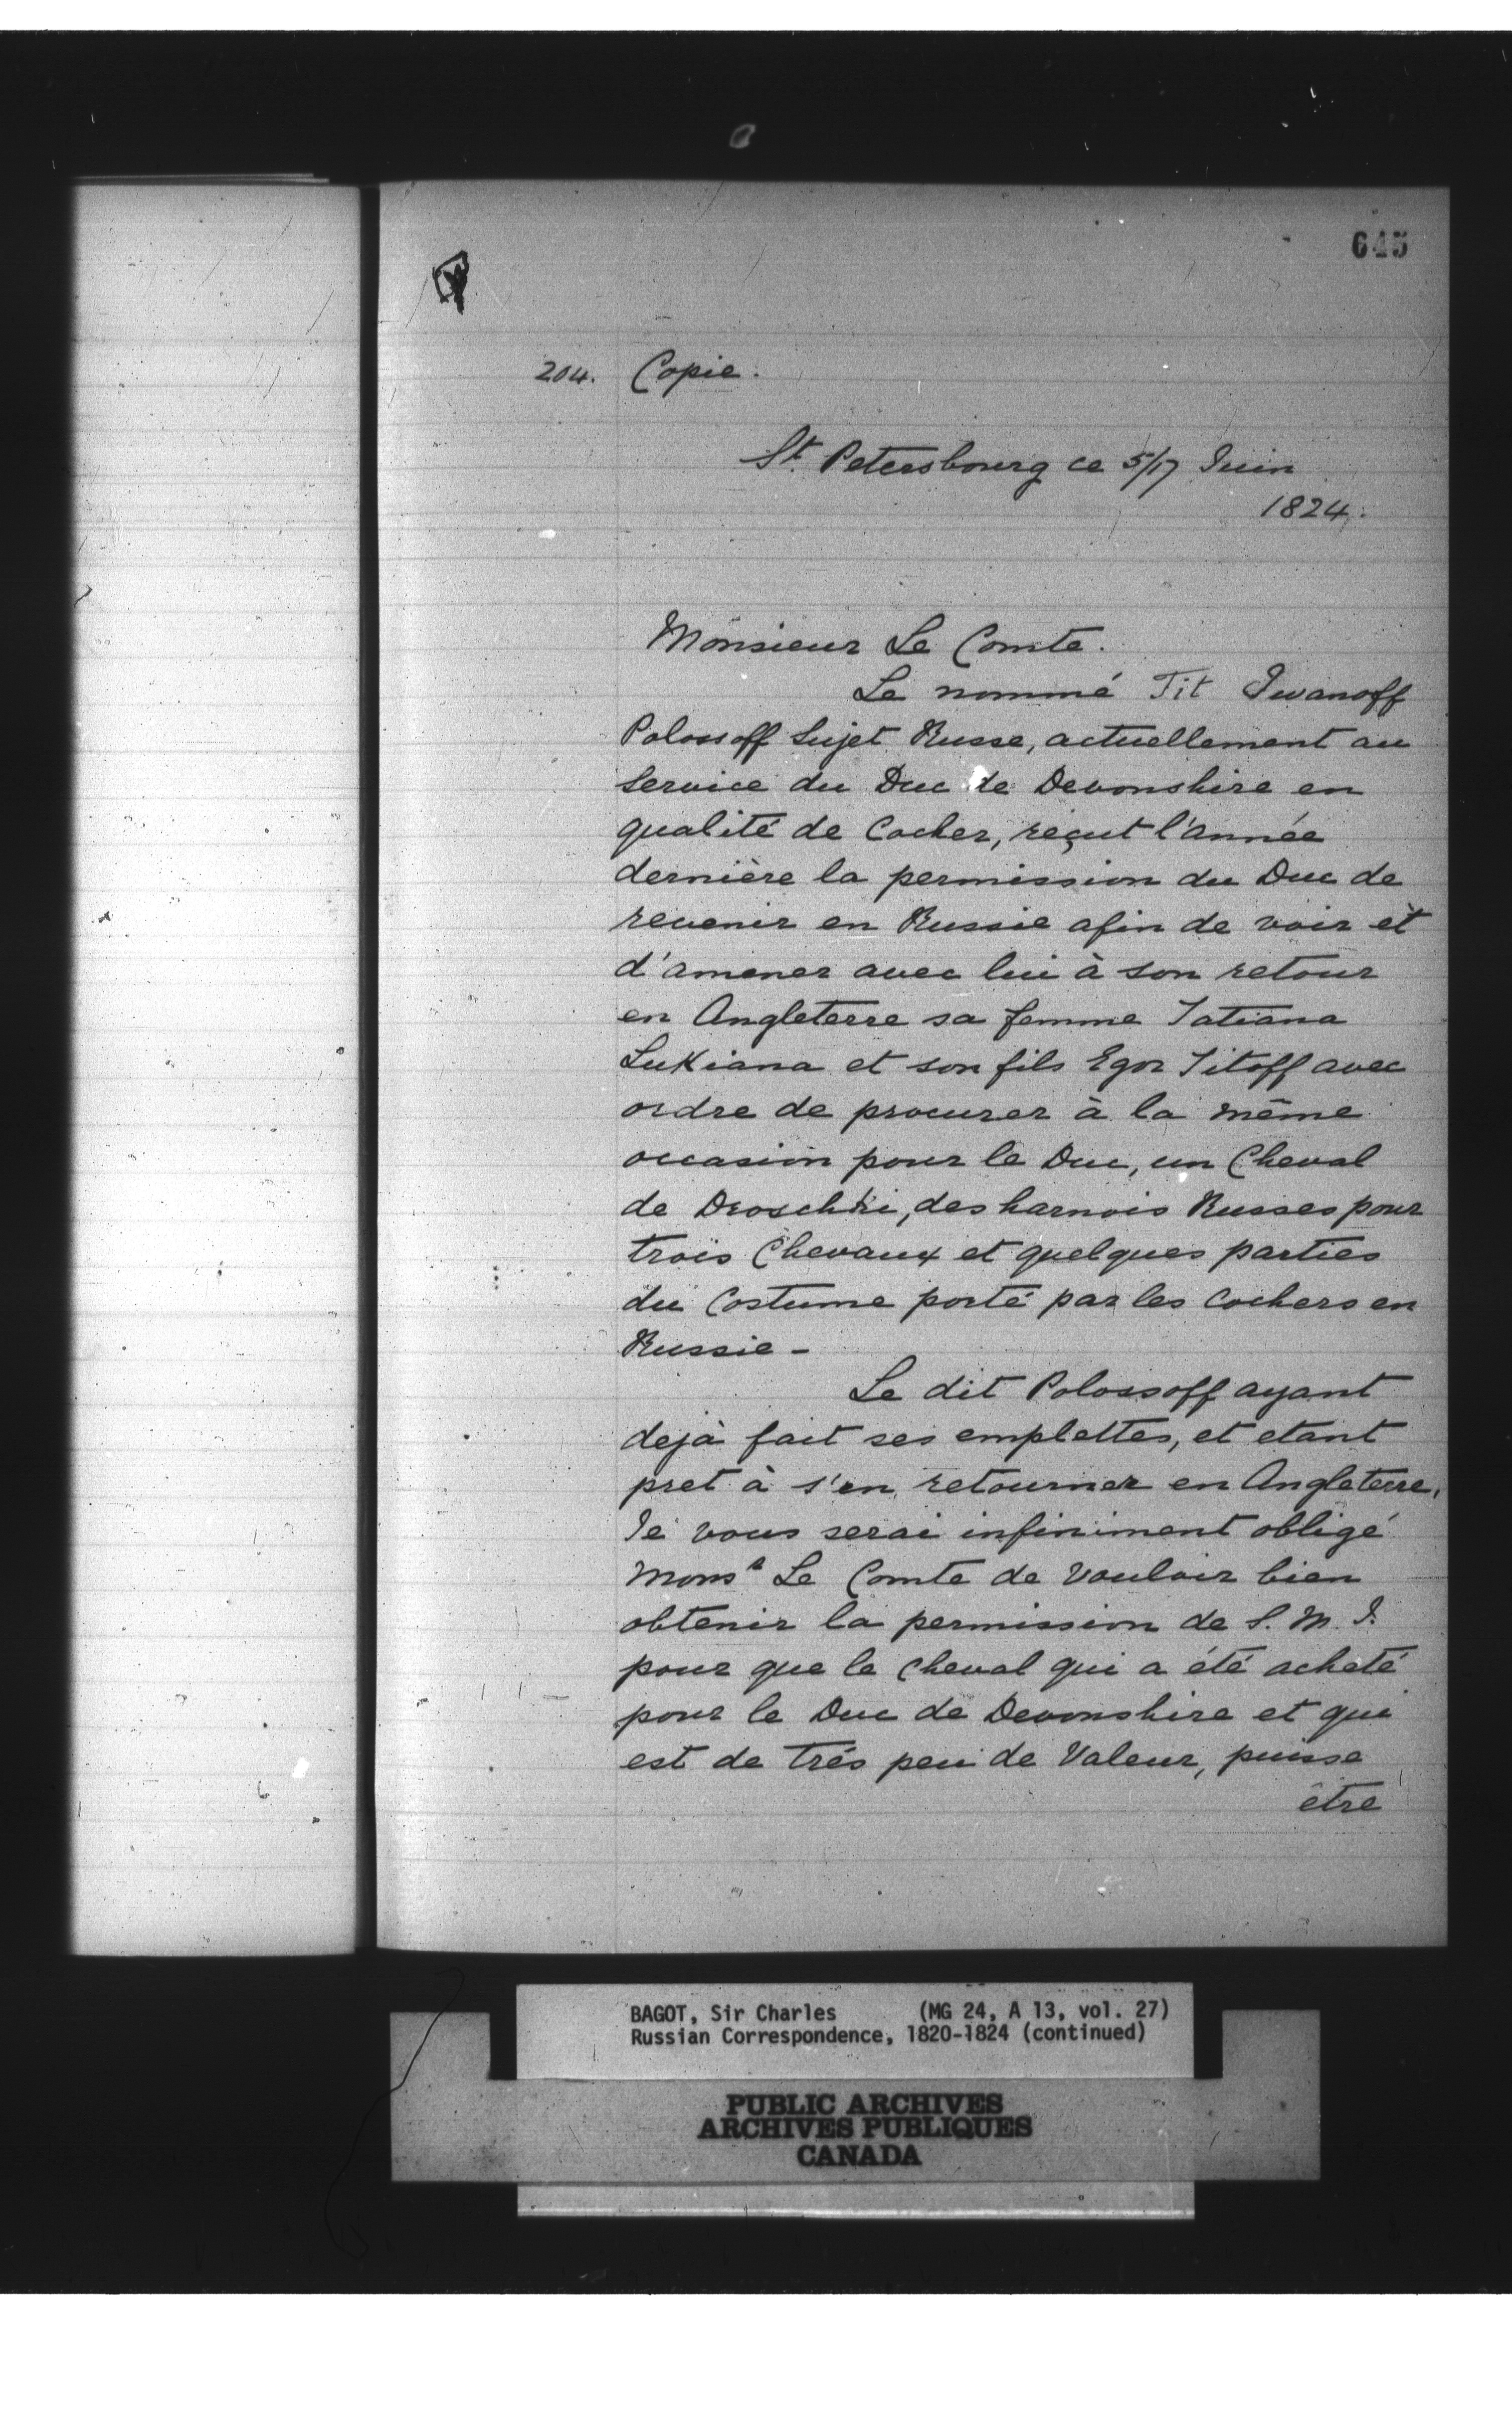 645
204. Copie.
St. Petersbourg ce 5/17 Juin
1824.
Monsieur Le Comte.
Le nommé Tit Iwanoff
Polossoff Sujet Russe, actuellement au
Service du Duc de Devonshire en
qualité de Cocher, reçut l'année
dernière la permission du Duc de
revenir en Russie afin de voir et
d'amener avec lui à son retour
en Angleterre sa femme Tatiana
Lukiana et son fils Egor Titoff avec
ordre de procurer à la même
occasion pour le Duc, un Cheval
de Droschki, des harnois Russes pour
trois Chevaux et quelques parties
du Costume porté par les Cochers en
Russie -
Le dit Polossoff ayant
dejà fait ses emplettes, et etant
pret à s'en retourner en Angleterre,
Je vous serai infiniment obligé
Monsr Le Comte de Vouloir bien
obtenir la permission de S. M. I.
pour que le Cheval qui a été acheté
pour le Duc de Devonshire et qui
est de trés peu de Valeur, puisse
être
BAGOT, Sir Charles (MG 24, A 13, vol. 27)
Russian Correspondence, 1820-1824 (continued)
PUBLIC ARCHIVES
ARCHIVES PUBLIQUES
CANADA